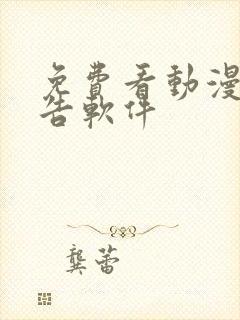 免費看動漫
告軟件
龔蕾